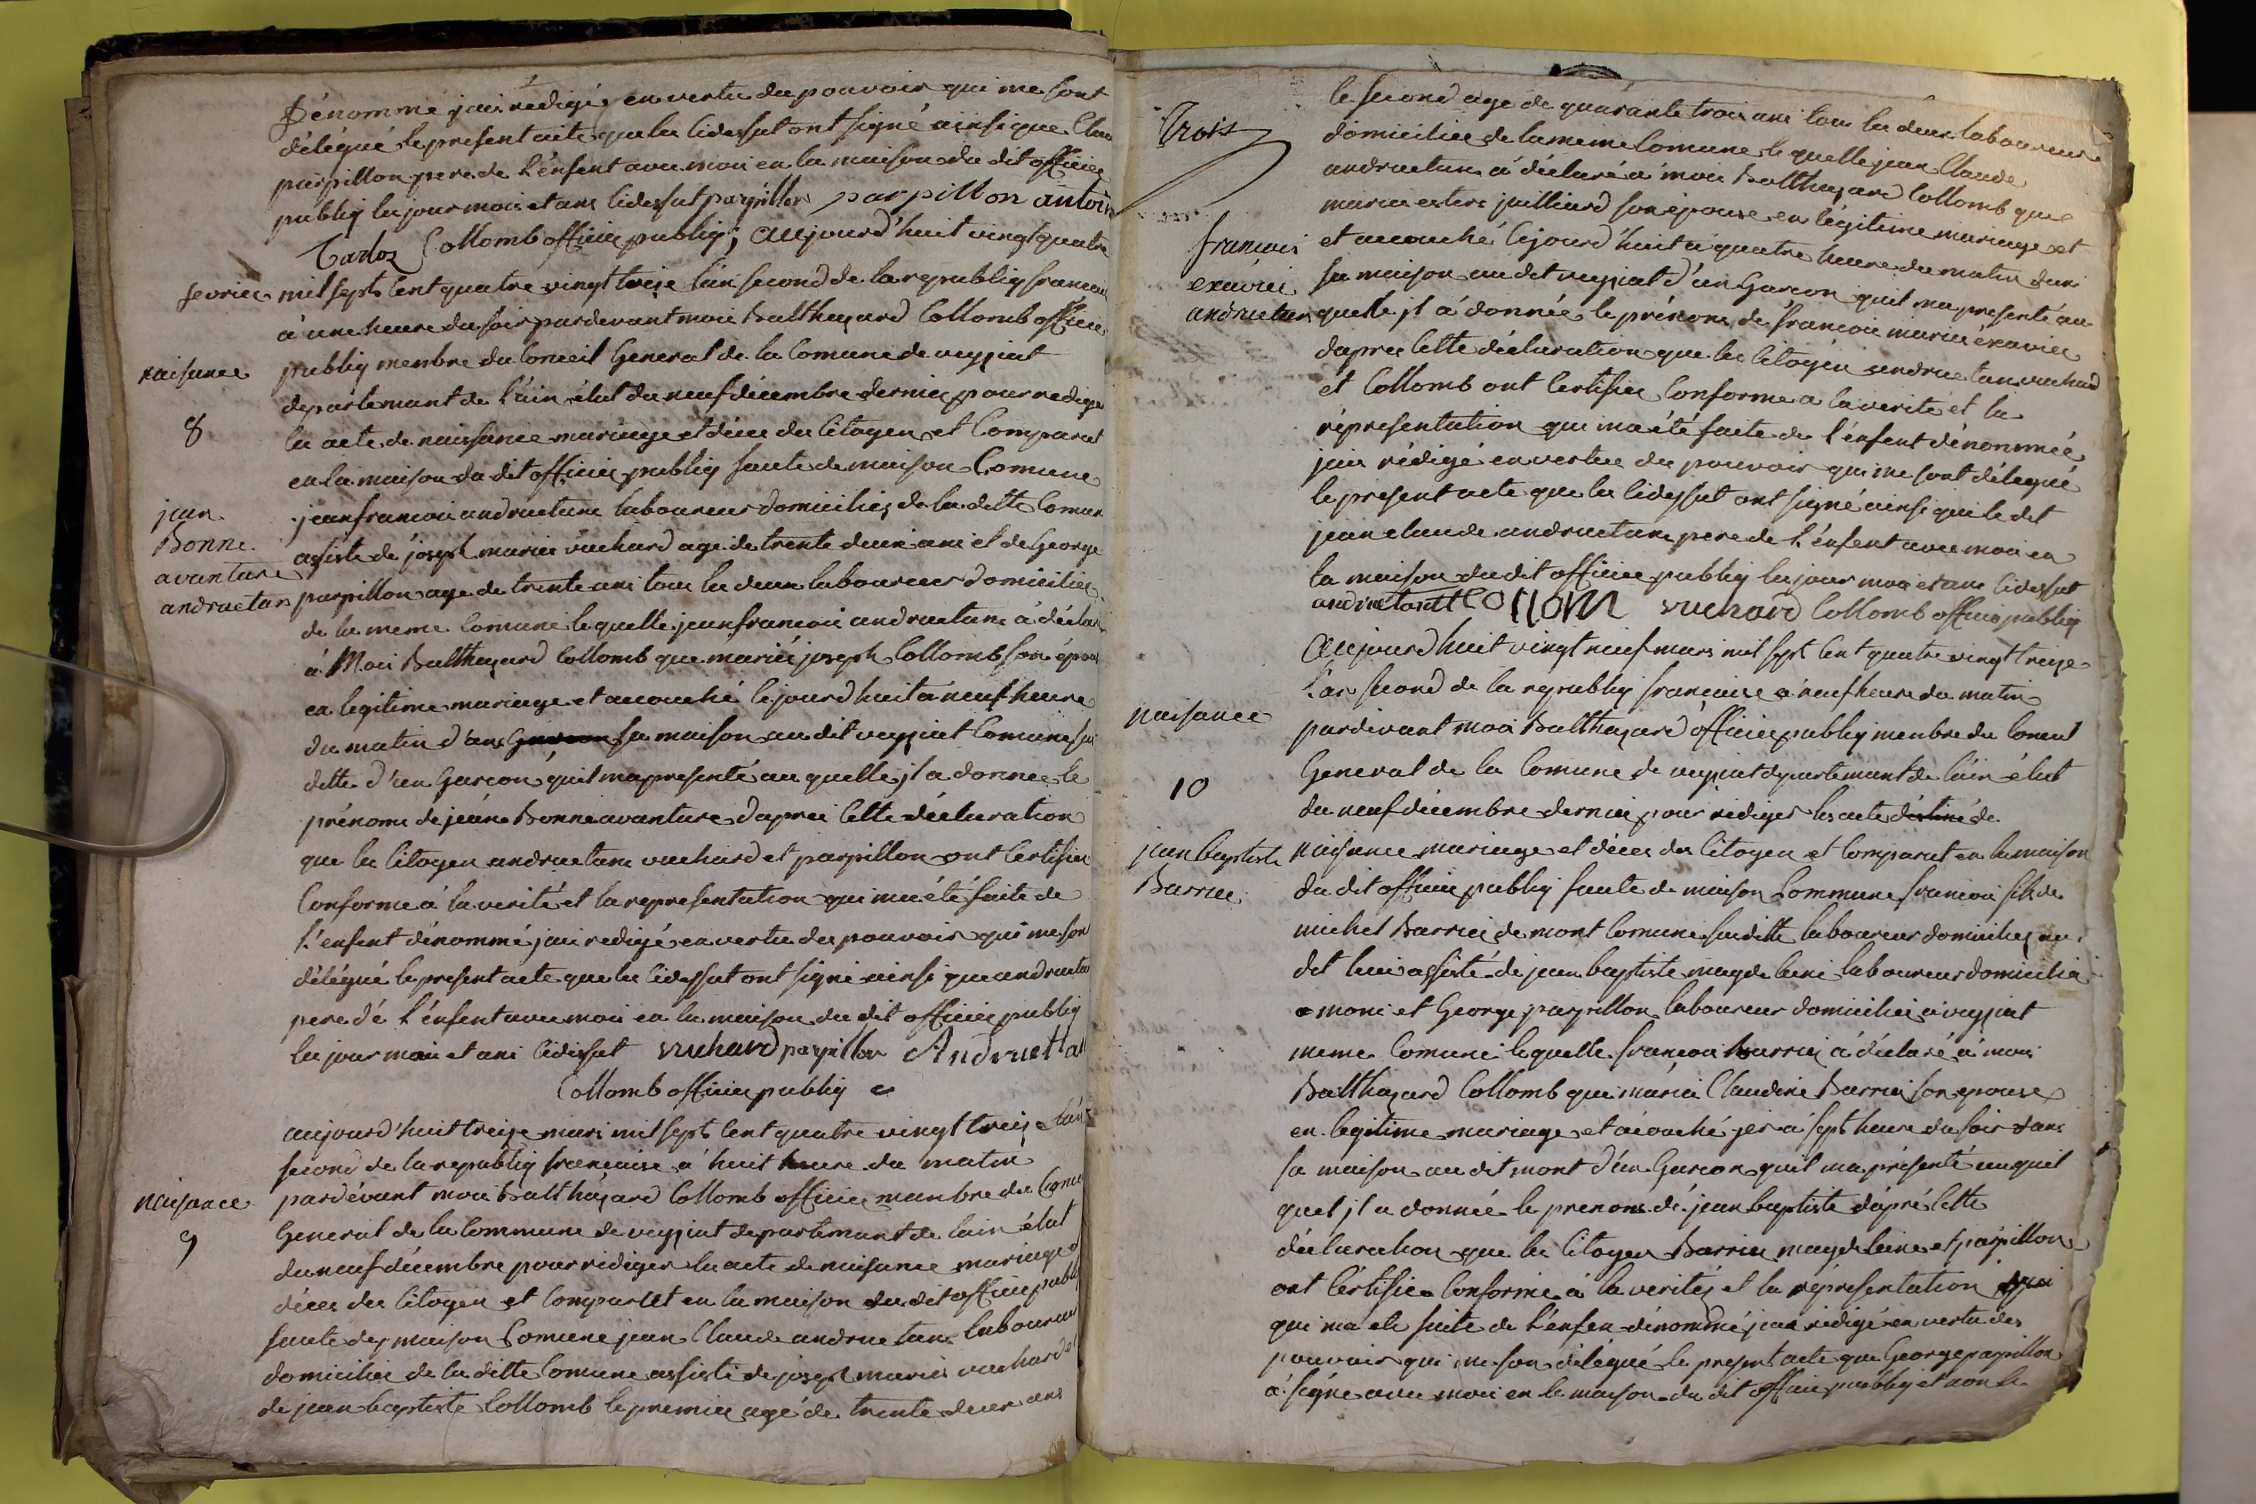 Dénommé jai rédigé en vertu du pouvoir qui me sont
délégué le present acte que les cidessut ont signé ainsi que Clau
parpillon pere de l'enfent avec moi en la maison du dit officier
publiq les jour mois et ans cidessut parpillon parpillon antoin
Tarloz Collomb officier publiq; aujourd'huit vingt quatre
fevrier mil sept cent quatre vingt treize l'an second de la republiq francai
à une heure du soir pardevant moi Balthazard Collomb officier
naisance
publiq membre du Conceil General de la Comune de veyziat
departemant de l'ain élut du neuf décembre dernier pour redige
8
les acte de naissance mariage et déces des Citoyen et Comparut
en la maison du dit officier publiq faute de maison Comune
jean
Bonne
avanture
andruetan
jean francois andruetant laboureur domicilié de la ditte Comun
assisté de joseph marie vuchard age de trente deux ans et de George
parpillon age de trente ans tous les deux laboureur domicilié
de la meme Comune le quelle jean francois andruetant à déclar
à Moi Balthazard Collomb que marie joseph Collomb son épou
en legitime mariage et acouché le jourd'huit à neuf heure
du matin dans sa maison au dit veyziat Comune su
ditte d'un Garcon quil ma presenté au quelle jl a donnee le
prénoms de jean Bonneavanture daprei cette déclaration
que les Citoyen andruetant vuchard et parpillon ont Certifier
Conforme à la verité et la representation qui ma été faite de
l'enfent dénommé jai redigé en vertu du pouvoir qui me son
délégué le present acte que les cidessut ont signé ainsi que andruetan
pere dé l'énfent avec moi en la maison du dit officier publiq
les jour mois et ans cidessut vuchard parpillon Andruetta
Collomb officier publiq
aujourd'huit treize mars mil sept cent quatre vingt treize l'an
second de la republiq francaise à huit heure du matin
naisance
pardévant moi Balthazard Collomb officier manbre du Conce
General de la Commune de veyziat departemant de lain élut
9
du neuf décembre pour rediger les acte de naisance mariage
déces des Citoyen et comparut en la maison du dit officier publi
faute de maison Comune jean Claude andruetant laboureur
domicilié de la ditte Comune assisté de joseph marie vuchard
de jean baptiste Collomb le premier agé de trente deux ans
Trois
le second age de quarante trois ans tous les deux laboureur
domicilié de la meme Comune le quelle jean Claude
andruetant à déclaré à moi Balthazard Collomb que
marie ester juilliard son épouse en légitime mariage et
francois
exavier
andruetan
et acouché le jourd'huit à quatre heure du matin dans
sa maison au dit veyziat d'un Garcon quil ma presenté au
quelle jl à donnée le prénoms de francois marie éxavier
daprés cette déclaration que les Citoyen andruetan vuchard
et Collomb ont Certifier Conforme a la verité et la
réprésentation qui ma été faite de l'énfent dénommée
jais rédigé en vertue du pouvoir qui me sont délégué
le present acte que les cidessut ont signé ainsi que le dit
jean claude andruetant pere de l'énfent avec moi en
la maison du dit officier publiq les jour mois et ans cidessut
andruetantt COLLOM vuchard Collomb officier publiq
Aujourdhuit vingt neuf mars mil sept Cent quatre vingt treize
l'an second de la republiq francaise a neuf heure du matin
naisance
pardevant moi Balthazard officier publiq menbre du Conceil
10
General de la Comune de veyziat departemant de lain élut
du neuf décembre dernier pour rédiger les acte destiné de
jean baptiste
Barrier
naisance mariage et déces des Citoyen et Comparut en la maison
du dit officier publiq faute de maison Commune francois fils de
michel Barrier de mont Comune susditte laboureur domicilié au
dit lieu assisté de jean baptiste magdeleine laboureur domicilié
a mont et George parpillon laboureur domicilié à veyziat
meme Comune lequelle francois Barrier à déclaré à moi
Balthazard Collomb que marie Claudine Barrier son epouse
en legitime mariage et acouché jer à sept heure du soir dans
sa maison au dit mont d'un Garcon quil ma présenté auquil
quel jl a donnée le prenoms dé jean baptiste dapré cette
déclaration que les Citoyen Barrier magdeleine et parpillon
ont Certifier Conforme à la verité et la réprésentation qui
qui ma ete faite de l'énfen dénommé jai rédigé en vertu des
pouvoir qui me son délégué le present acte que George parpillon
à signé avec moi en la maison du dit officier publiq et non le